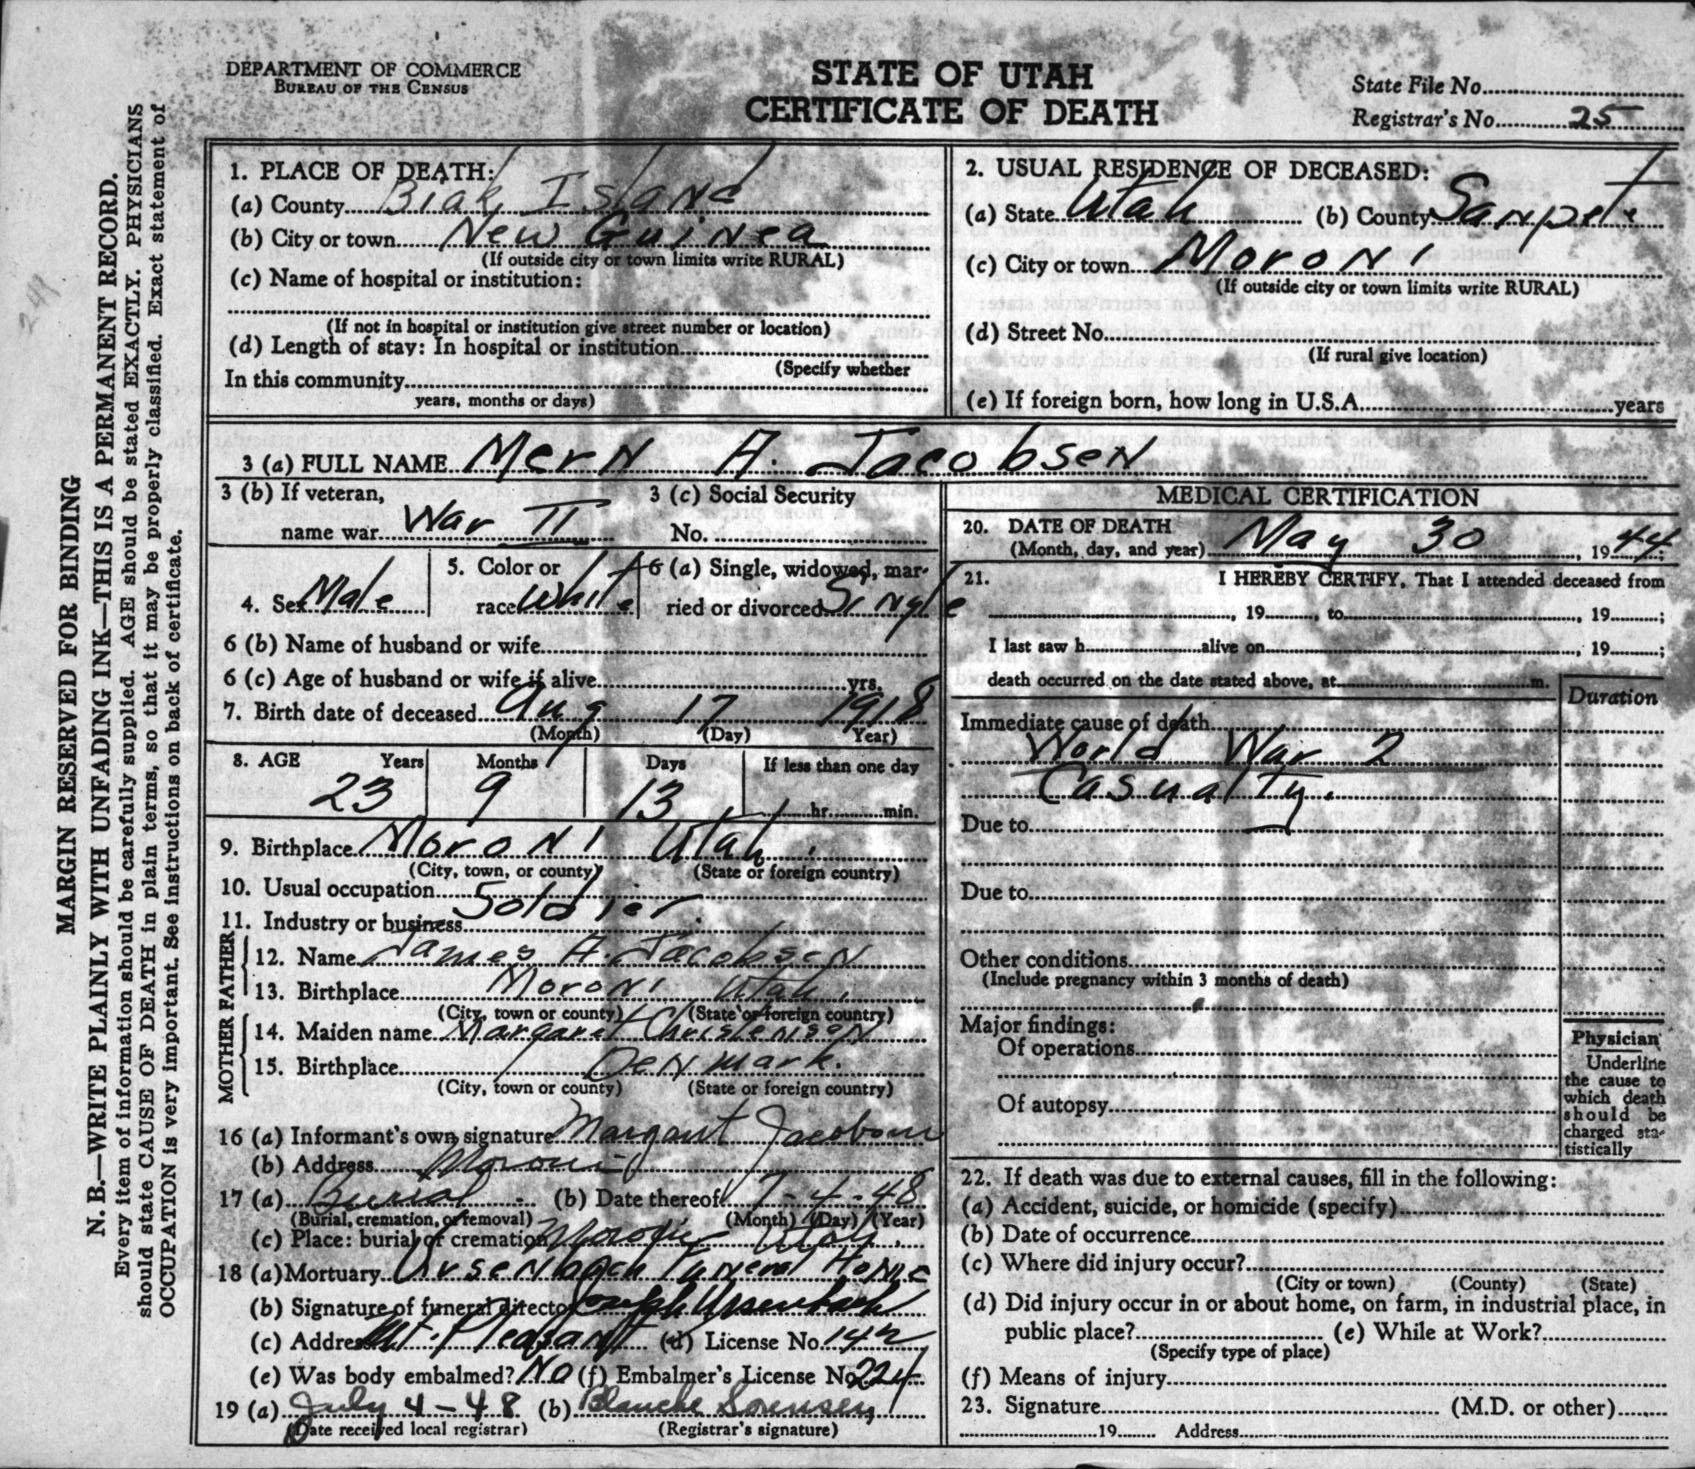 DEPARTMENT OF COMMERCE
BUREAU OF THE CENSUS
STATE OF UTAH
CERTIFICATE OF DEATH
State File No.
Registrar's No. 25
241
MARGIN RESERVED FOR BINDING
N. B.—WRITE PLAINLY WITH UNFADING INK—THIS IS A PERMANENT RECORD.
Every item of information should be carefully supplied. AGE should be stated EXACTLY. PHYSICIANS
should state CAUSE OF DEATH in plain terms, so that it may be properly classified. Exact statement of
OCCUPATION is very important. See instructions on back of certificate.
1. PLACE OF DEATH:
(a) County Biak Island
(b) City or town New Guinea
(If outside city or town limits write RURAL)
(c) Name of hospital or institution:
(If not in hospital or institution give street number or location)
(d) Length of stay: In hospital or institution
(Specify whether
In this community
years, months or days)
2. USUAL RESIDENCE OF DECEASED:
(a) State Utah (b) County Sanpete
(c) City or town Moroni
(If outside city or town limits write RURAL)
(d) Street No.
(If rural give location)
(e) If foreign born, how long in U.S.A. years
3 (a) FULL NAME Mern A. Jacobsen
3 (b) If veteran,
name war War II
3 (c) Social Security
No.
4. Sex Male
5. Color or
race White
6 (a) Single, widowed, mar-
ried or divorced Single
6 (b) Name of husband or wife
6 (c) Age of husband or wife if alive yrs.
7. Birth date of deceased Aug 17 1918
(Month) (Day) Year)
8. AGE Years Months Days If less than one day
23 9 13 hr. min.
9. Birthplace Moroni Utah.
(City, town, or county) (State or foreign country)
10. Usual occupation Soldier.
11. Industry or business
FATHER
12. Name James A. Jacobsen
13. Birthplace Moroni Utah.
(City, town or county) (State or foreign country)
MOTHER
14. Maiden name Margaret Christensen
15. Birthplace Denmark.
(City, town or county) (State or foreign country)
16 (a) Informant's own signature Margaret Jacobsen
(b) Address Moroni
17 (a) Burial (b) Date thereof 7-4-48
(Burial, cremation, or removal) (Month) (Day) (Year)
(c) Place: burial or cremation Moroni Utah.
18 (a) Mortuary Ursenbach Funeral Home
(b) Signature of funeral director Ursenbach
(c) Address Mt. Pleasant (d) License No. 142
(e) Was body embalmed? No (f) Embalmer's License No. 224
19 (a) July 4-48 (b) Blanche Sorensen
(Date received local registrar) (Registrar's signature)
MEDICAL CERTIFICATION
20. DATE OF DEATH
(Month, day, and year) May 30, 1944;
21. I HEREBY CERTIFY, That I attended deceased from
, 19 , to , 19 ;
I last saw h alive on , 19 ;
death occurred on the date stated above, at m.
Duration
Immediate cause of death
World War 2
Casualty.
Due to
Due to
Other conditions
(Include pregnancy within 3 months of death)
Major findings:
Of operations
Of autopsy
Physician
Underline
the cause to
which death
should be
charged sta-
tistically
22. If death was due to external causes, fill in the following:
(a) Accident, suicide, or homicide (specify)
(b) Date of occurrence
(c) Where did injury occur?
(City or town) (County) (State)
(d) Did injury occur in or about home, on farm, in industrial place, in
public place? (e) While at Work?
(Specify type of place)
(f) Means of injury
23. Signature (M.D. or other)
19 Address